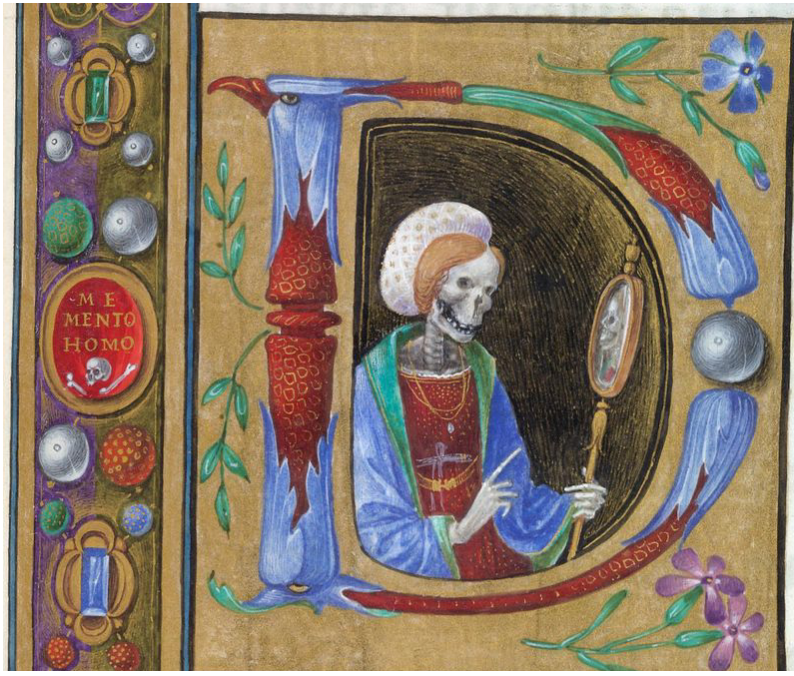 ME
MENTO
HOMO